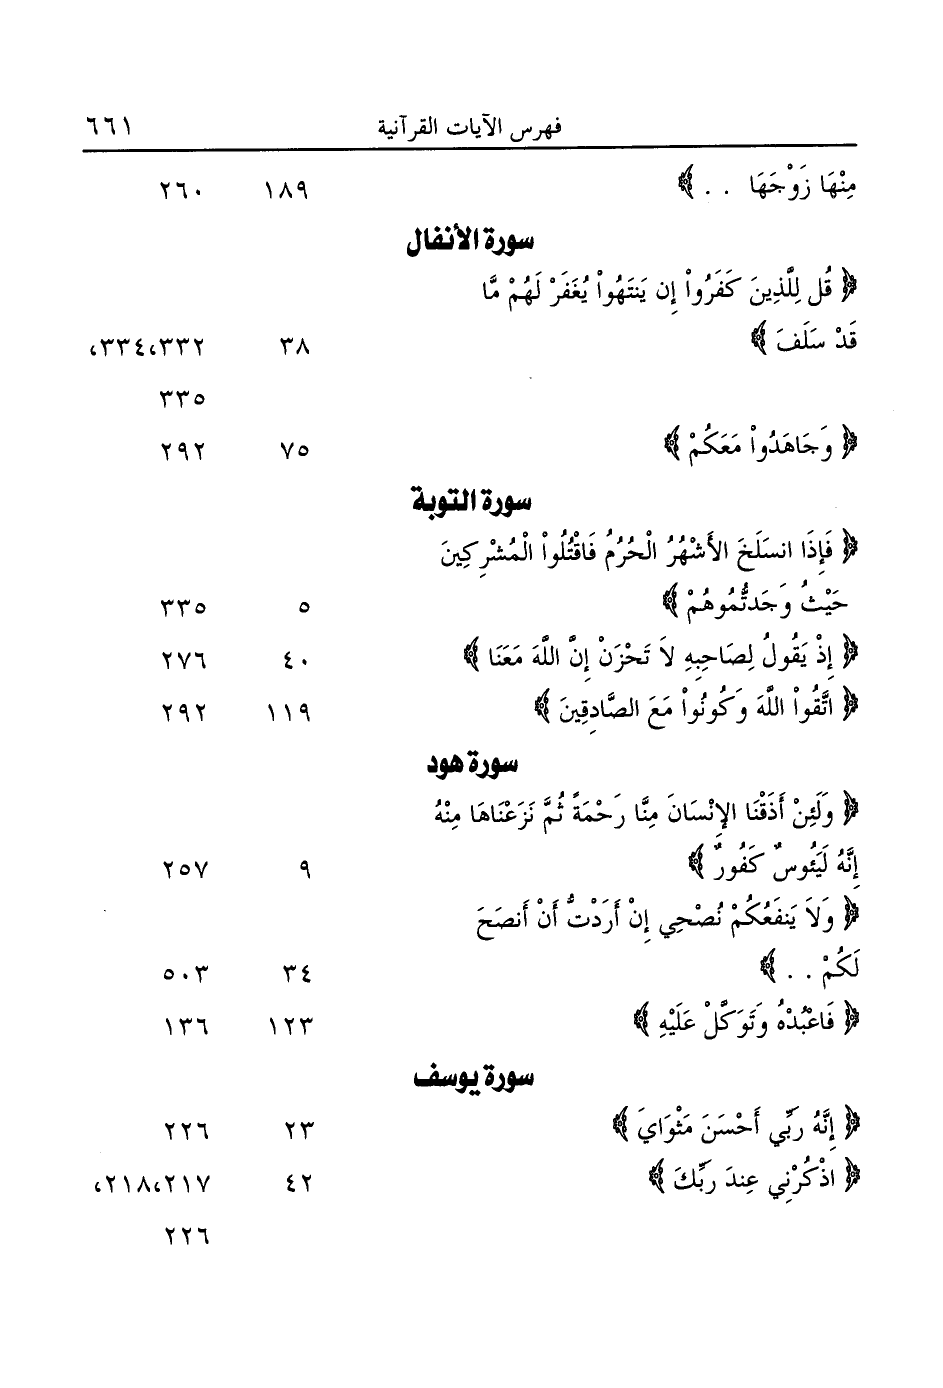 فهرس الآيات القرآنية ٦٦١
مِنْهَا زَوْجَهَا . . ﴾ ١٨٩ ٢٦٠
سورة الأنفال
﴿ قُل لِلَّذِينَ كَفَرُواْ إِن يَنتَهُواْ يُغَفَرْ لَهُمْ مَّا
قَدْ سَلَفَ ﴾ ٣٨ ٣٣٢،٣٣٤،
٣٣٥
﴿ وَجَاهَدُواْ مَعَكُمْ ﴾ ٧٥ ٢٩٢
سورة التوبة
﴿ فَإِذَا انسَلَخَ الأَشْهُرُ الْحُرُمُ فَاقْتُلُواْ الْمُشْرِكِينَ
حَيْثُ وَجَدتُّمُوهُمْ ﴾ ٥ ٣٣٥
﴿ إِذْ يَقُولُ لِصَاحِبِهِ لاَ تَحْزَنْ إِنَّ اللَّهَ مَعَنَا ﴾ ٤٠ ٢٧٦
﴿ اتَّقُواْ اللَّهَ وَكُونُواْ مَعَ الصَّادِقِينَ ﴾ ١١٩ ٢٩٢
سورة هود
﴿ وَلَئِنْ أَذَقْنَا الإِنْسَانَ مِنَّا رَحْمَةً ثُمَّ نَزَعْنَاهَا مِنْهُ
إِنَّهُ لَيَئُوسٌ كَفُورٌ ﴾ ٩ ٢٥٧
﴿ وَلاَ يَنفَعُكُمْ نُصْحِي إِنْ أَرَدْتُّ أَنْ أَنصَحَ
لَكُمْ . . ﴾ ٣٤ ٥٠٣
﴿ فَاعْبُدْهُ وَتَوَكَّلْ عَلَيْهِ ﴾ ١٢٣ ١٣٦
سورة يوسف
﴿ إِنَّهُ رَبِّي أَحْسَنَ مَثْوَايَ ﴾ ٢٣ ٢٢٦
﴿ اذْكُرْنِي عِندَ رَبِّكَ ﴾ ٤٢ ٢١٧،٢١٨،
٢٢٦